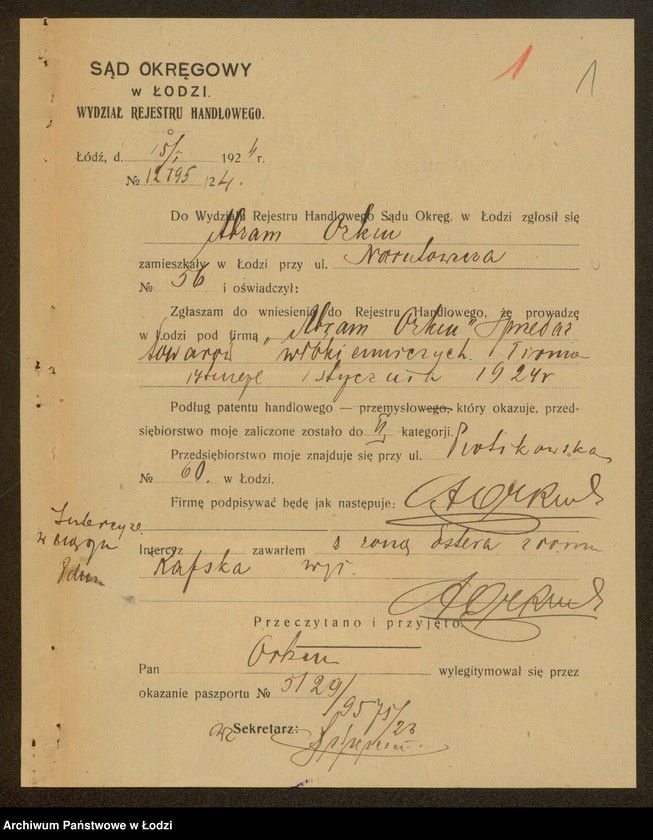 1 1
SĄD OKRĘGOWY
w ŁODZI.
WYDZIAŁ REJESTRU HANDLOWEGO.
Łódź, d. 15/I 1924 r.
№ 12795/24.
Do Wydziału Rejestru Handlowego Sądu Okręg. w Łodzi zgłosił się
Abram Orkin
zamieszkały w Łodzi przy ul. Narutowicza
№ 56 i oświadczył:
Zgłaszam do wniesienia do Rejestru Handlowego, że prowadzę
w Łodzi pod firmą „Abram Orkin” Sprzedaż
towarów włókienniczych. Firma
istnieje 1 stycznia 1924 r
Podług patentu handlowego — przemysłowego, który okazuje, przed-
siębiorstwo moje zaliczone zostało do II kategorji.
Przedsiębiorstwo moje znajduje się przy ul. Piotrkowska
№ 60. w Łodzi.
Firmę podpisywać będę jak następuje: A Orkin
Intercyzę
w ciągu
Intercyz zawarłem z żoną
Przeczytano i przyjęto
A Orkin
Pan Orkin wylegitymował się przez
okazanie paszportu № 5129/
/9575/23
Sekretarz:
Archiwum Państwowe w Łodzi